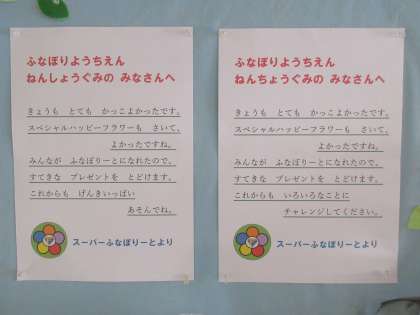 ふなぼりようちえん
ねんしょうぐみの みなさんへ
きょうも とても かっこよかったです。
スペシャルハッピーフラワーも さいて、
よかったですね。
みんなが ふなぼりーとになれたので、
すてきな プレゼントを とどけます。
これからも げんきいっぱい
あそんでね。
スーパーふなぼりーとより
ふなぼりようちえん
ねんちょうぐみの みなさんへ
きょうも とても かっこよかったです。
スペシャルハッピーフラワーも さいて、
よかったですね。
みんなが ふなぼりーとになれたので、
すてきな プレゼントを とどけます。
これからも いろいろなことに
チャレンジしてください。
スーパーふなぼりーとより